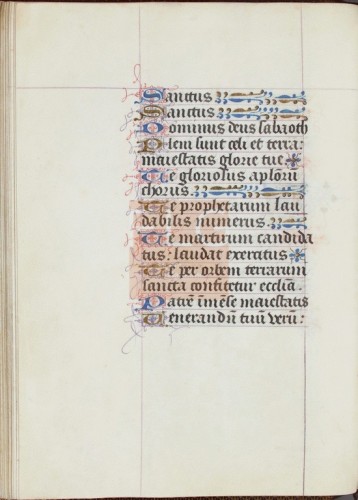 Sanctus
Sanctus
Dominus deus sabaoth
Pleni sunt celi et terra:
maiestatis glorie tue
Te gloriosus aplorū
chorus.
Te prophetarum lau
dabilis numerus.
Te martirum candida
tus: laudat exercitus
Te per orbem terrarum
sancta confitetur ecclīa.
Patrē īmēse maiestatis
Venerandū tuū verū: